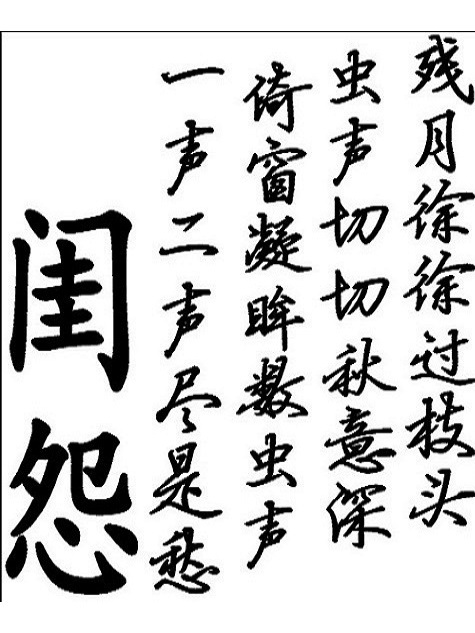 残月徐徐过枝头
虫声切切秋意深
倚窗凝眸数虫声
一声二声尽是愁
闺怨